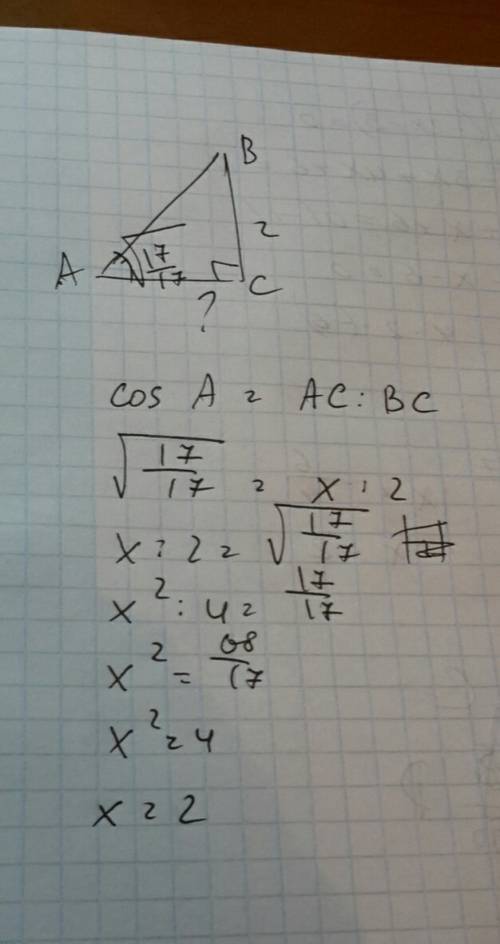 B
2
A
√17/17
C
?
cos A = AC : BC
√17/17 = x : 2
x : 2 = √17/17
x² : 4 = 17/17
x² = 68/17
x² = 4
x = 2